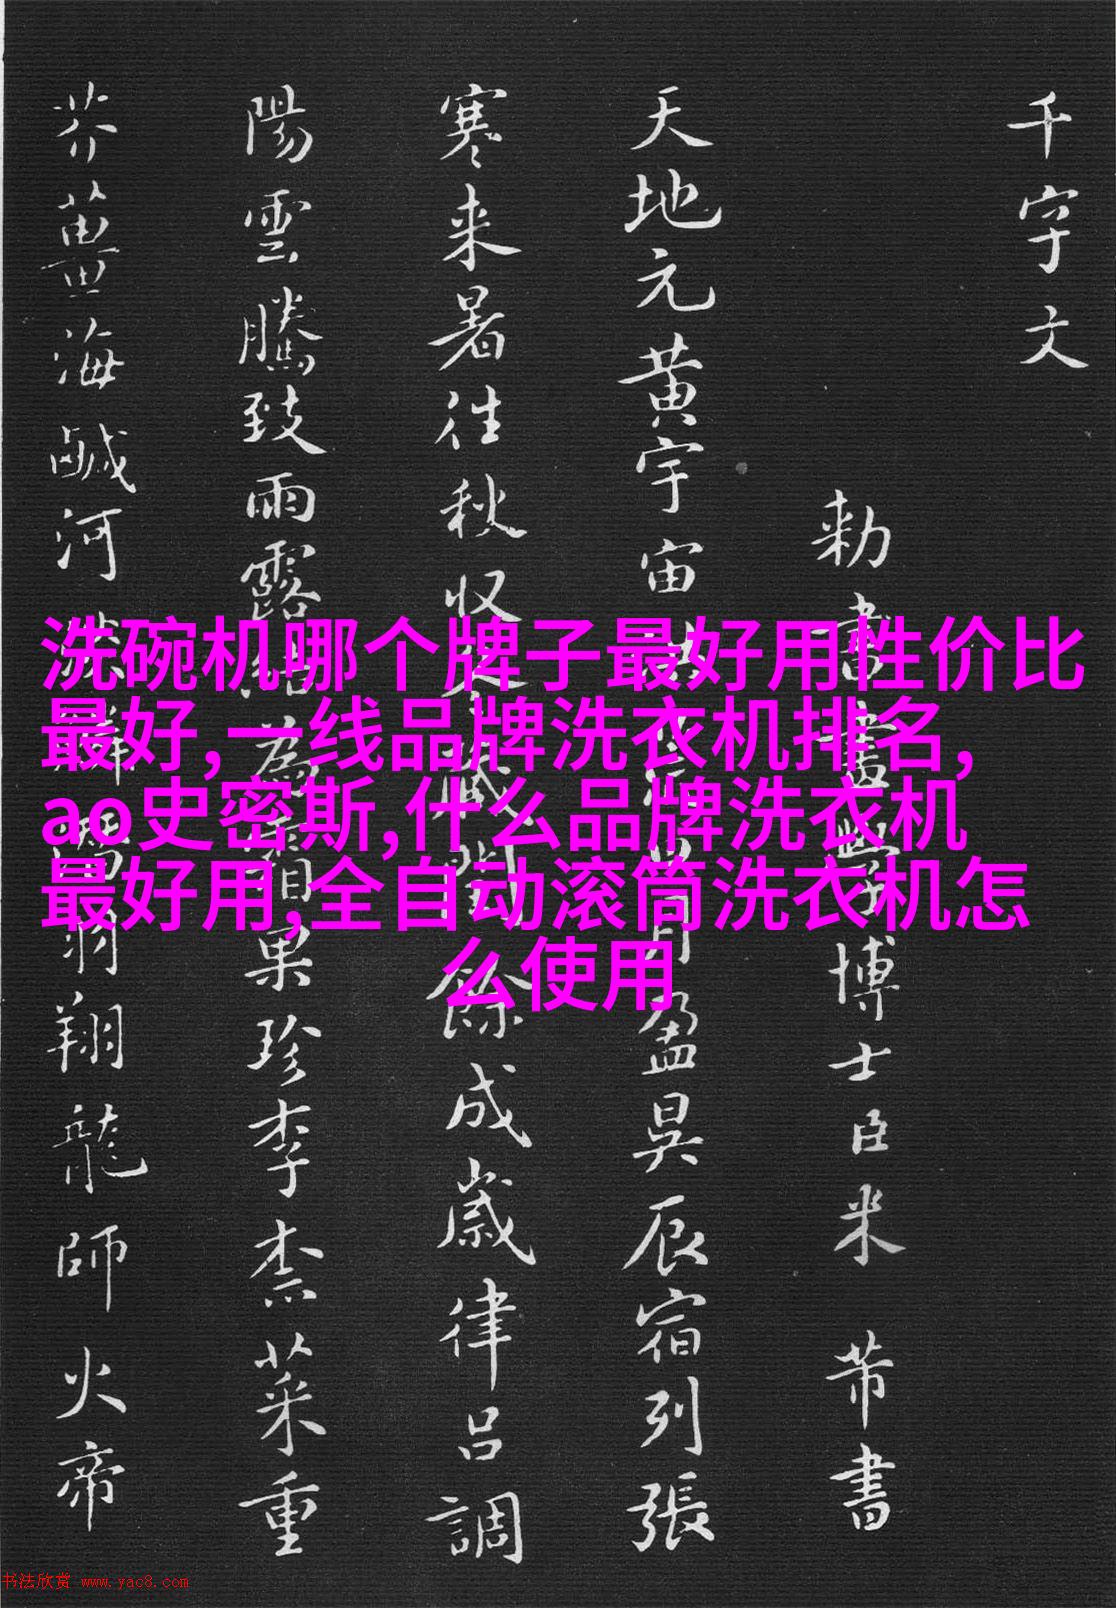 千字文
勅書畫學博士臣米芾書
天地元黄宇宙洪荒日月盈昃辰宿列張
寒来暑往秋収冬蔵閏餘成歲律吕調
陽雲騰致雨露結為霜果珍李柰菜重
芥薑海鹹河淡鱗潛羽翔龍師火帝
洗碗机哪个牌子最好用性价比
最好,一线品牌洗衣机排名,
ao史密斯,什么品牌洗衣机
最好用,全自动滚筒洗衣机怎
么使用
书法欣赏 www.yac8.com